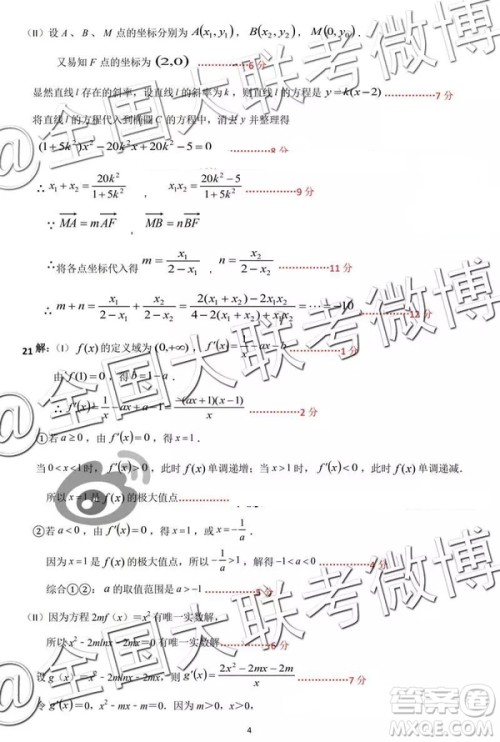 (II) 设 A 、 B 、 M 点的坐标分别为 A(x₁,y₁) , B(x₂,y₂) , M(0,y₀) .
又易知 F 点的坐标为 (2,0) ……………6 分
显然直线 l 存在的斜率，设直线 l 的斜率为 k ，则直线 l 的方程是 y=k(x−2) ……………7 分
将直线 l 的方程代入到椭圆 C 的方程中，消去 y 并整理得
(1+5k²)x²−20k²x+20k²−5=0 ……………8 分
∴ x₁+x₂=20k²/(1+5k²) , x₁x₂=(20k²−5)/(1+5k²) ……………9 分
又∵ MA=mAF , MB=nBF
∴ 将各点坐标代入得 m=x₁/(2−x₁) , n=x₂/(2−x₂) ……………11 分
∴ m+n=x₁/(2−x₁)+x₂/(2−x₂)=(2(x₁+x₂)−2x₁x₂)/(4−2(x₁+x₂)+x₁x₂)=……=−10 ……………12 分
21 解：(1) f(x) 的定义域为 (0,+∞) , f′(x)=1/x−ax−b ……………1 分
由 f′(1)=0 ，得 b=1−a .
∴ f′(x)=1/x−ax+a−1=−(ax+1)(x−1)/x ……………2 分
①若 a≥0 ，由 f′(x)=0 ，得 x=1 .
当 0<x<1 时， f′(x)>0 ，此时 f(x) 单调递增；当 x>1 时， f′(x)<0 ，此时 f(x) 单调递减.
所以 x=1 是 f(x) 的极大值点
②若 a<0 ，由 f′(x)=0 ，得 x=1 ，或 x=−1/a .
因为 x=1 是 f(x) 的极大值点，所以 −1/a>1 ，解得 −1<a<0
综合①②： a 的取值范围是 a>−1 ……………5 分
(II) 因为方程 2mf（x）=x² 有唯一实数解，
所以 x²−2mlnx−2mx=0 有唯一实数解 ……………6 分
设 g（x）=x²−2mlnx−2mx，则 g′(x)=(2x²−2mx−2m)/x ……………7 分
令 g′(x)=0，x²−mx−m=0．因为 m＞0，x＞0，
4
@全国大联考微博
@全国大联考微博
@全国大联考微博
答案圈